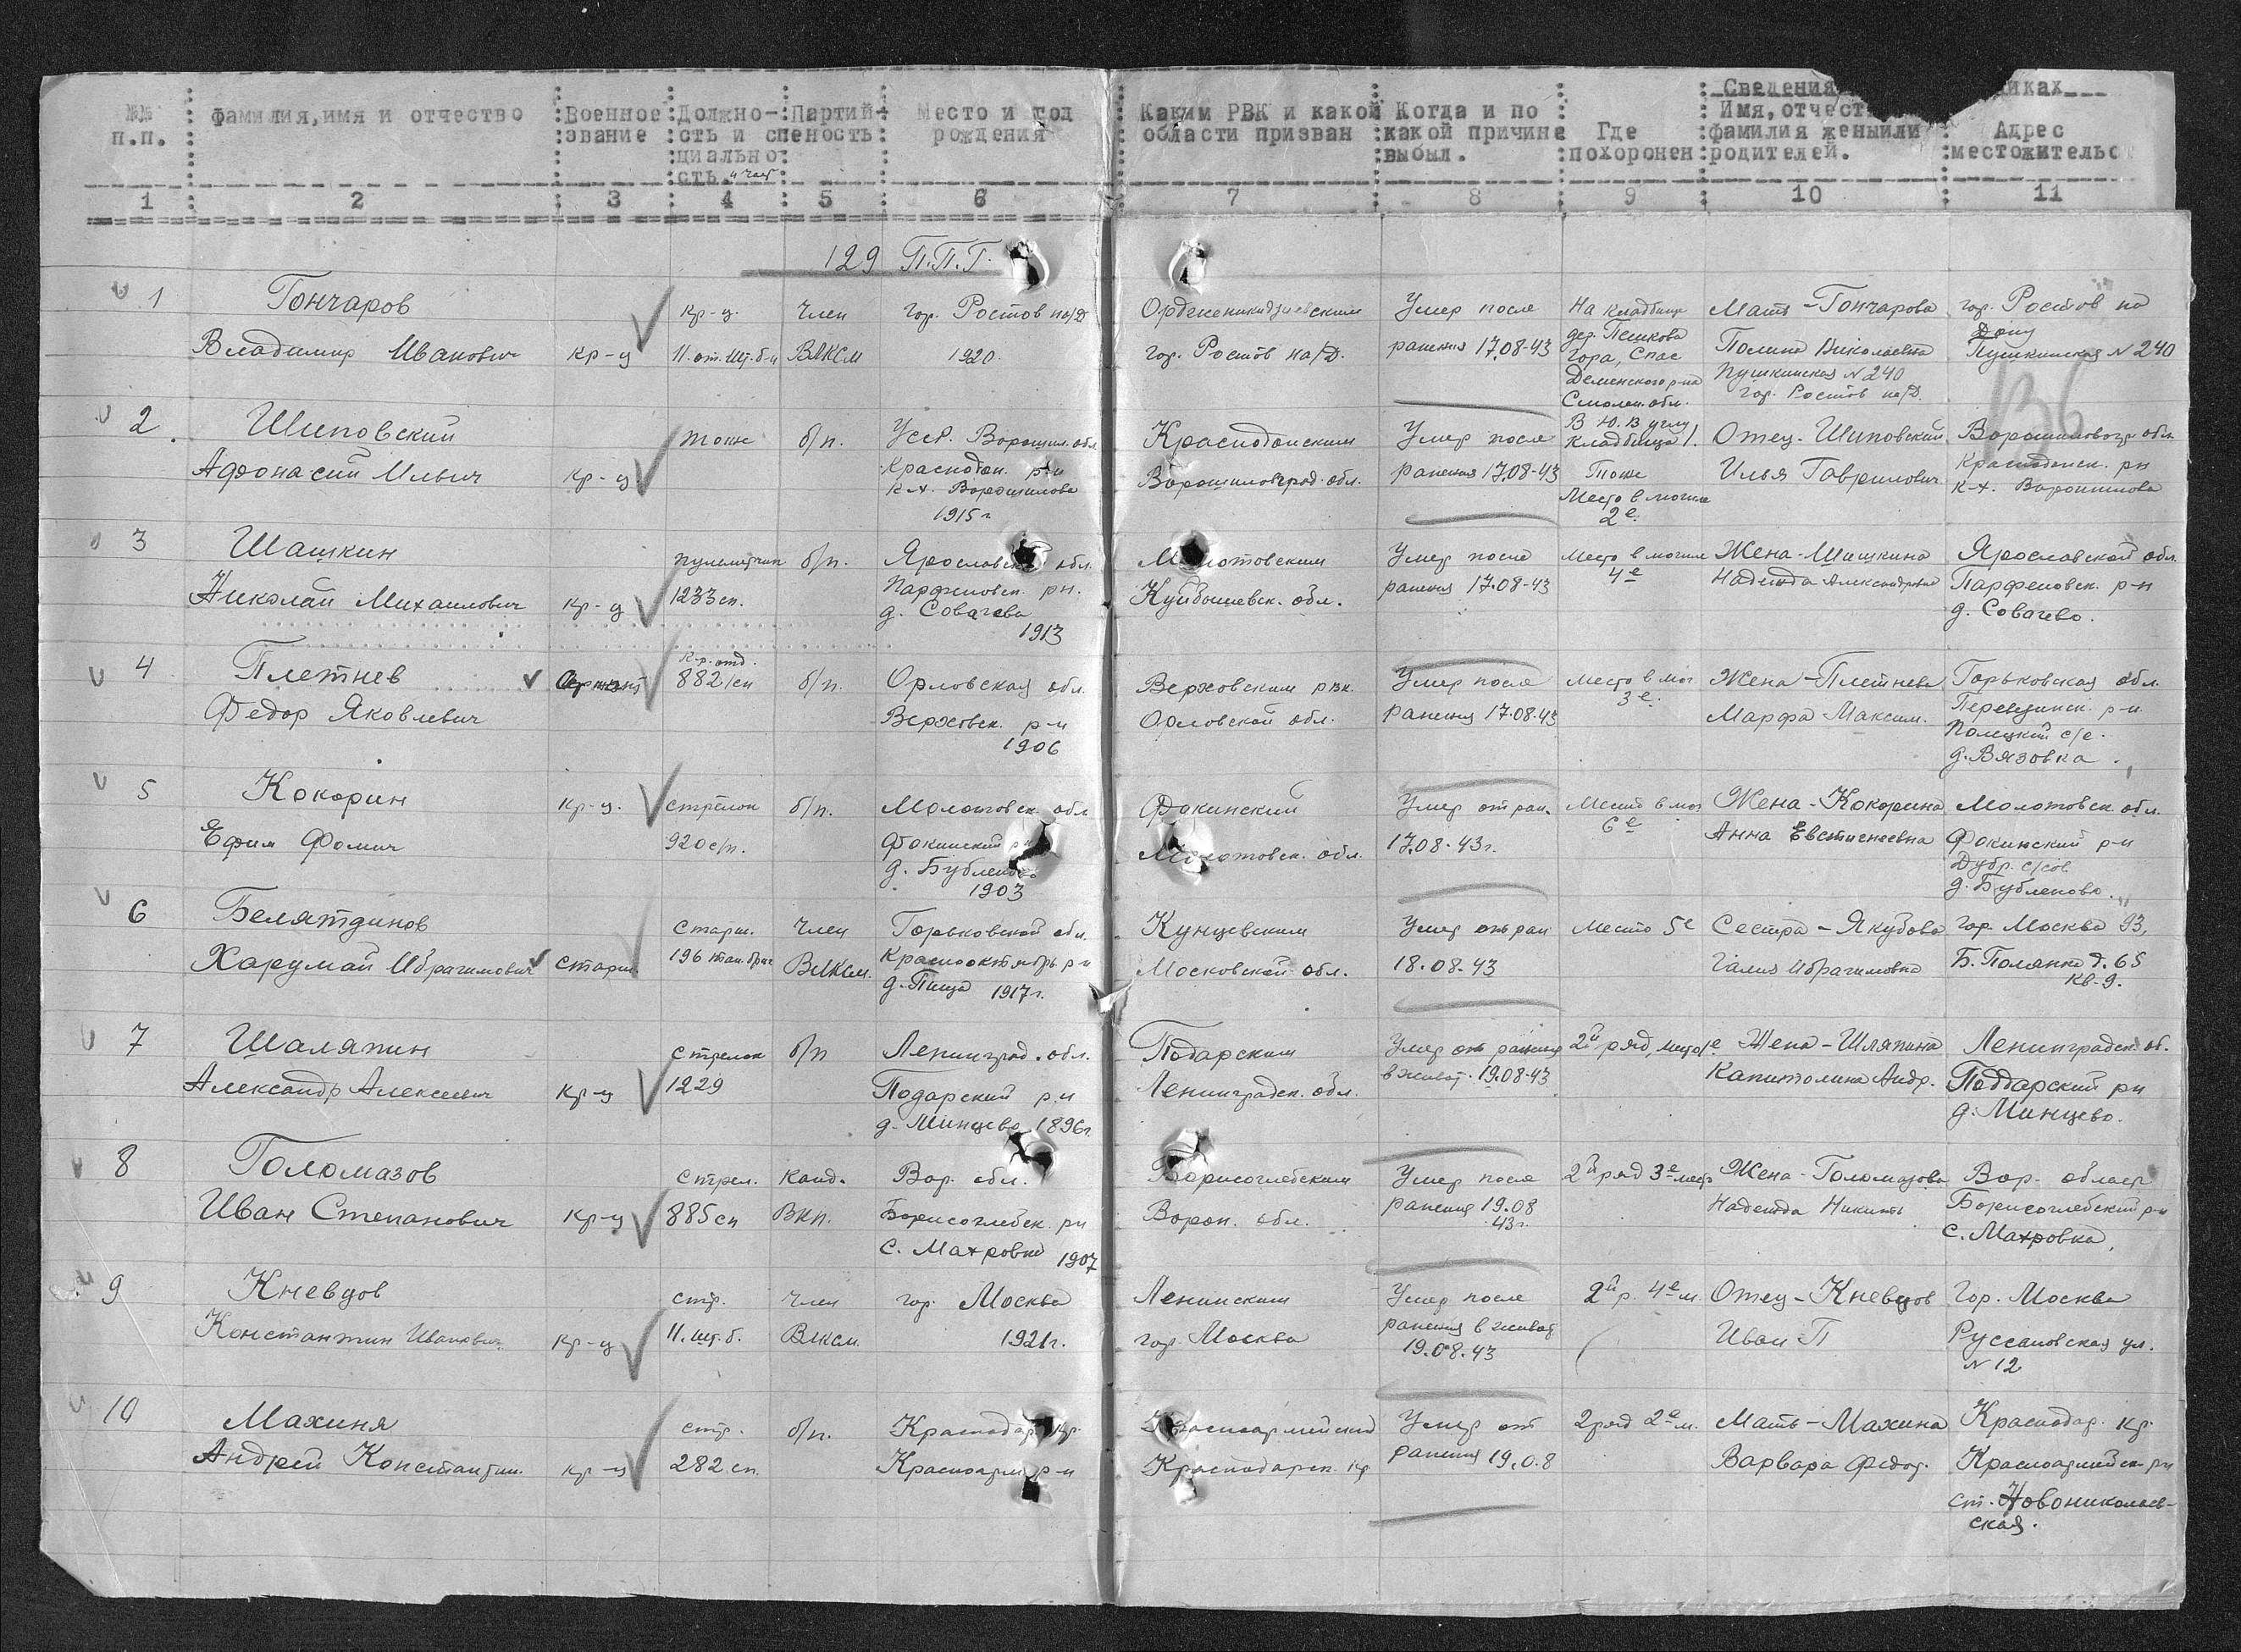 №№ н.п.
фамилия,имя и отчество
Военное звание
Должно-сть и специально сть и часть
Партий-ность
Место и год рождения
Каким РВК и какой области призван
Когда и по какой причине выбыл.
Где похоронен
Сведения
иках
Имя,отчест фамилия жены или родителей.
Адрес местожительс
1 2 3 4 5 6 7 8 9 10 11
129 П.П.Г.
136
1
Гончаров
Владимир Иванович
кр-ц
кр-ц.
11 от. шт. б-н
Член
ВЛКСМ
гор. Ростов на/Д
1920.
Орджоникидзиевским
гор. Ростов на/Д.
Умер после
ранения 17.08-43
На кладбище
дер. Пешкова
Гора, Спас
Деменского р-на
Смолен. обл.
В Ю.В углу
кладбища 1.
Мать-Гончарова
Полина Николаевна
Пушкинская N 240
гор. Ростов на/Д.
гор. Ростов на
Дону
Пушкинская N 240
2.
Шиповский
Афонасий Ильич
кр-ц
тоже
б/п.
Усср. Ворошил. обл
Краснодон. р-н
к-х. Ворошилова
1915 г
Краснодонским
Ворошиловград. обл.
Умер после
ранения 17.08-43
Тоже
Место в могиле
2е.
Отец-Шиповский
Илья Гаврилович
Ворошиловогр обл.
Краснодонск. рн
к-х. Ворошилова
3
Шашкин
Николай Михаилович
кр-ц
пулеметчик
1233 сп.
б/п.
Ярославск обл.
Парфеновск. рн.
д. Совачево
1913
Молотовским
Куйбышевск. обл.
Умер после
ранения 17.08-43
Место в могиле
4е
Жена-Шишкина
Надежда Александровна
Ярославской обл.
Парфеновск. р-н
д. Совачево.
4
Плетнев
Федор Яковлевич
Сержант
К-р. отд.
882/сп
б/п.
Орловская обл.
Верховск. р-н
1906
Верховским рвк.
Орловской обл.
Умер после
ранения 17.08.43
Место в мог
3е.
Жена-Плетнева
Марфа Максим.
Горьковская обл.
р-н
с/с.
д. Вязовка.
5
Кокорин
Ефим Фомич
кр-ц.
стрелок
920 с/п.
б/п.
Молотовск. обл
Фокинский р-н
д. Бубленово
1903
Фокинский
Молотовск. обл.
Умер от ран.
17.08-43 г.
Место в мог
6е
Жена-Кокорина
Анна Евстигнеевна
Молотовск. обл.
Фокинский р-н
Дубр. с/сов.
д. Бубленово.
6
Белятдинов
Харумай Ибрагимович
старш.
старш.
196 тан. бриг
Член
ВЛКСМ.
Горьковской обл.
Краснооктябрь р-н
д. Пица 1917 г.
Кунцевским
Московской обл.
Умер от ран
18.08.43
Место 5е
Сестра-Якубова
Галия Ибрагимовна
гор. Москва 93,
Б. Полянка д. 65
кв-9.
7
Шаляпин
Александр Алексеевич
кр-ц
стрелок
1229
б/п
Ленинград. обл.
Подарский р.н
д. Минцево 1896 г.
Подарским
Ленинградск. обл.
Умер от ранения
в живот. 19.08-43
2й ряд, место 1е
Жена-Шляпина
Капитолина Андр.
Ленинградск. об.
Поддарский рн
д. Минцево.
8
Голомазов
Иван Степанович
кр-ц
стрел.
885 сп
канд.
ВКП.
Вор. обл.
Борисоглебск. рн
с. Махровка 1907
Борисоглебским
Ворон. обл.
Умер после
ранения 19.08
43 г.
2й ряд 3е место
Жена-Голомазова
Надежда Никит.
Вор. област
Борисоглебский р-н
с. Махровка,
9
Кневцов
Константин Иванович.
кр-ц
стр.
11. шт. б.
Член
ВЛКСМ.
гор. Москва
1921 г.
Ленинским
гор. Москва
Умер после
ранения в живот
19.08.43
2й р. 4е м.
Отец-Кневцов
Иван П
Гор. Москва
Руссаковская ул.
N 12
10
Махиня
Андрей Константин.
кр-ц
стр.
282 сп.
б/п.
Краснодар кр.
Красноарм р-н
Красноармейский
Краснодарск. кр
Умер от
ранения 19.0.8
2 ряд 2е м.
Мать-Махина
Варвара Федор.
Краснодар. кр.
Красноармейск рн
ст. Новониколаев-
ская.